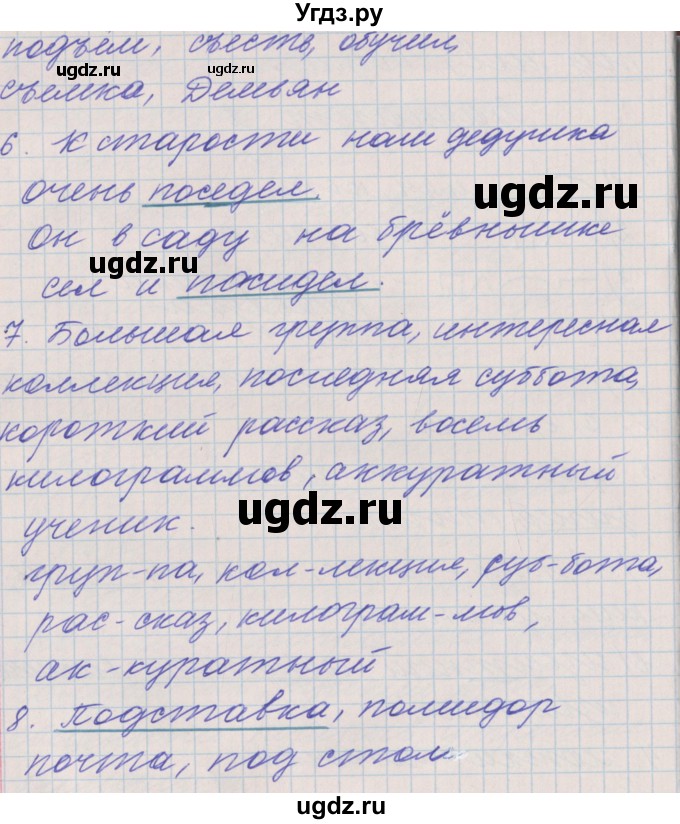 Угдз.ру
подъём, съесть, обучил,
съёмка, Демьян
ugdz.ru
ugdz.ru
6. К старости наш дедушка
очень поседел.
ugdz.ru
Он в саду на брёвнышке
ugdz.ru
сел и посидел.
7. Большая группа, интересная
коллекция, последняя суббота,
ugdz.ru
короткий рассказ, восемь
килограммов, аккуратный
ugdz.ru
ученик.
груп-па, кол-лекция, суб-бота,
рас-сказ, килограм-мов,
ак-куратный
ugdz.ru
8. Подставка, помидор
почта, под стол
ugdz.ru